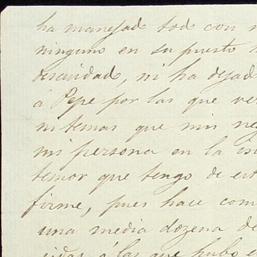 ha manejado todo con
ninguno en su puesto
ni ha dejad
á Pepe por las que ve
ni temas que mis ne
mi persona en la
temor que tengo de est
firme, pues hace com
una media dozena de
á las que hubo e